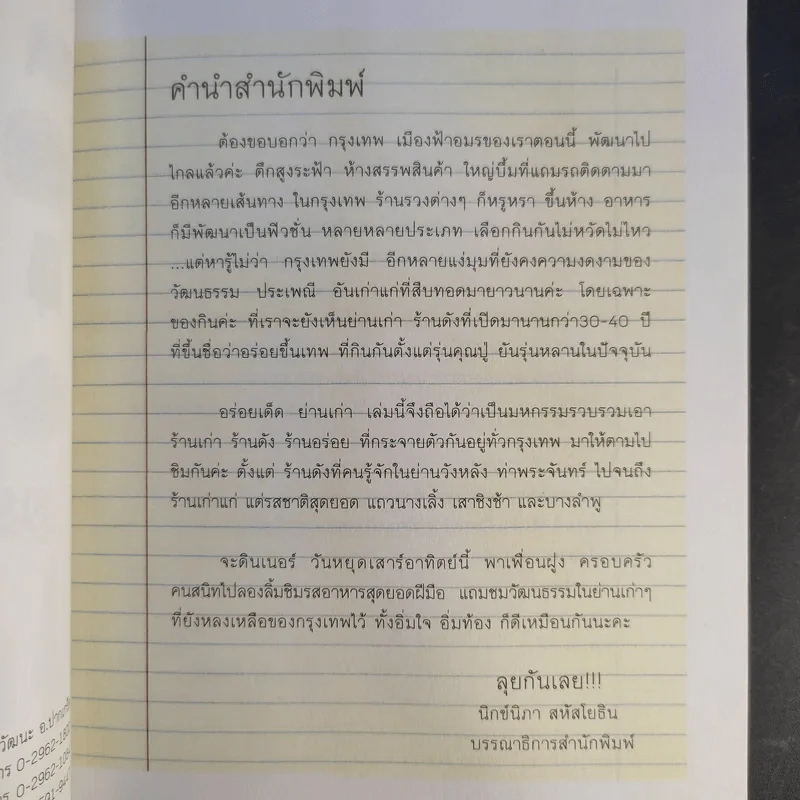 คำนำสำนักพิมพ์
ต้องขอบอกว่า กรุงเทพ เมืองฟ้าอมรของเราตอนนี้ พัฒนาไป
ไกลแล้วค่ะ ตึกสูงระฟ้า ห้างสรรพสินค้า ใหญ่บึ้มที่แถมรถติดตามมา
อีกหลายเส้นทาง ในกรุงเทพ ร้านรวงต่างๆ ก็หรูหรา ขึ้นห้าง อาหาร
ก็มีพัฒนาเป็นฟิวชั่น หลายหลายประเภท เลือกกินกันไม่หวัดไม่ไหว
...แต่หารู้ไม่ว่า กรุงเทพยังมี อีกหลายแง่มุมที่ยังคงความงดงามของ
วัฒนธรรม ประเพณี อันเก่าแก่ที่สืบทอดมายาวนานค่ะ โดยเฉพาะ
ของกินค่ะ ที่เราจะยังเห็นย่านเก่า ร้านดังที่เปิดมานานกว่า30-40 ปี
ที่ขึ้นชื่อว่าอร่อยขึ้นเทพ ที่กินกันตั้งแต่รุ่นคุณปู่ ยันรุ่นหลานในปัจจุบัน
อร่อยเด็ด ย่านเก่า เล่มนี้จึงถือได้ว่าเป็นมหกรรมรวบรวมเอา
ร้านเก่า ร้านดัง ร้านอร่อย ที่กระจายตัวกันอยู่ทั่วกรุงเทพ มาให้ตามไป
ชิมกันค่ะ ตั้งแต่ ร้านดังที่คนรู้จักในย่านวังหลัง ท่าพระจันทร์ ไปจนถึง
ร้านเก่าแก่ แต่รสชาติสุดยอด แถวนางเลิ้ง เสาชิงช้า และบางลำพู
จะดินเนอร์ วันหยุดเสาร์อาทิตย์นี้ พาเพื่อนฝูง ครอบครัว
คนสนิทไปลองลิ้มชิมรสอาหารสุดยอดฝีมือ แถมชมวัฒนธรรมในย่านเก่าๆ
ที่ยังหลงเหลือของกรุงเทพไว้ ทั้งอิ่มใจ อิ่มท้อง ก็ดีเหมือนกันนะคะ
ลุยกันเลย!!!
นิกข์นิภา สหัสโยธิน
บรรณาธิการสำนักพิมพ์